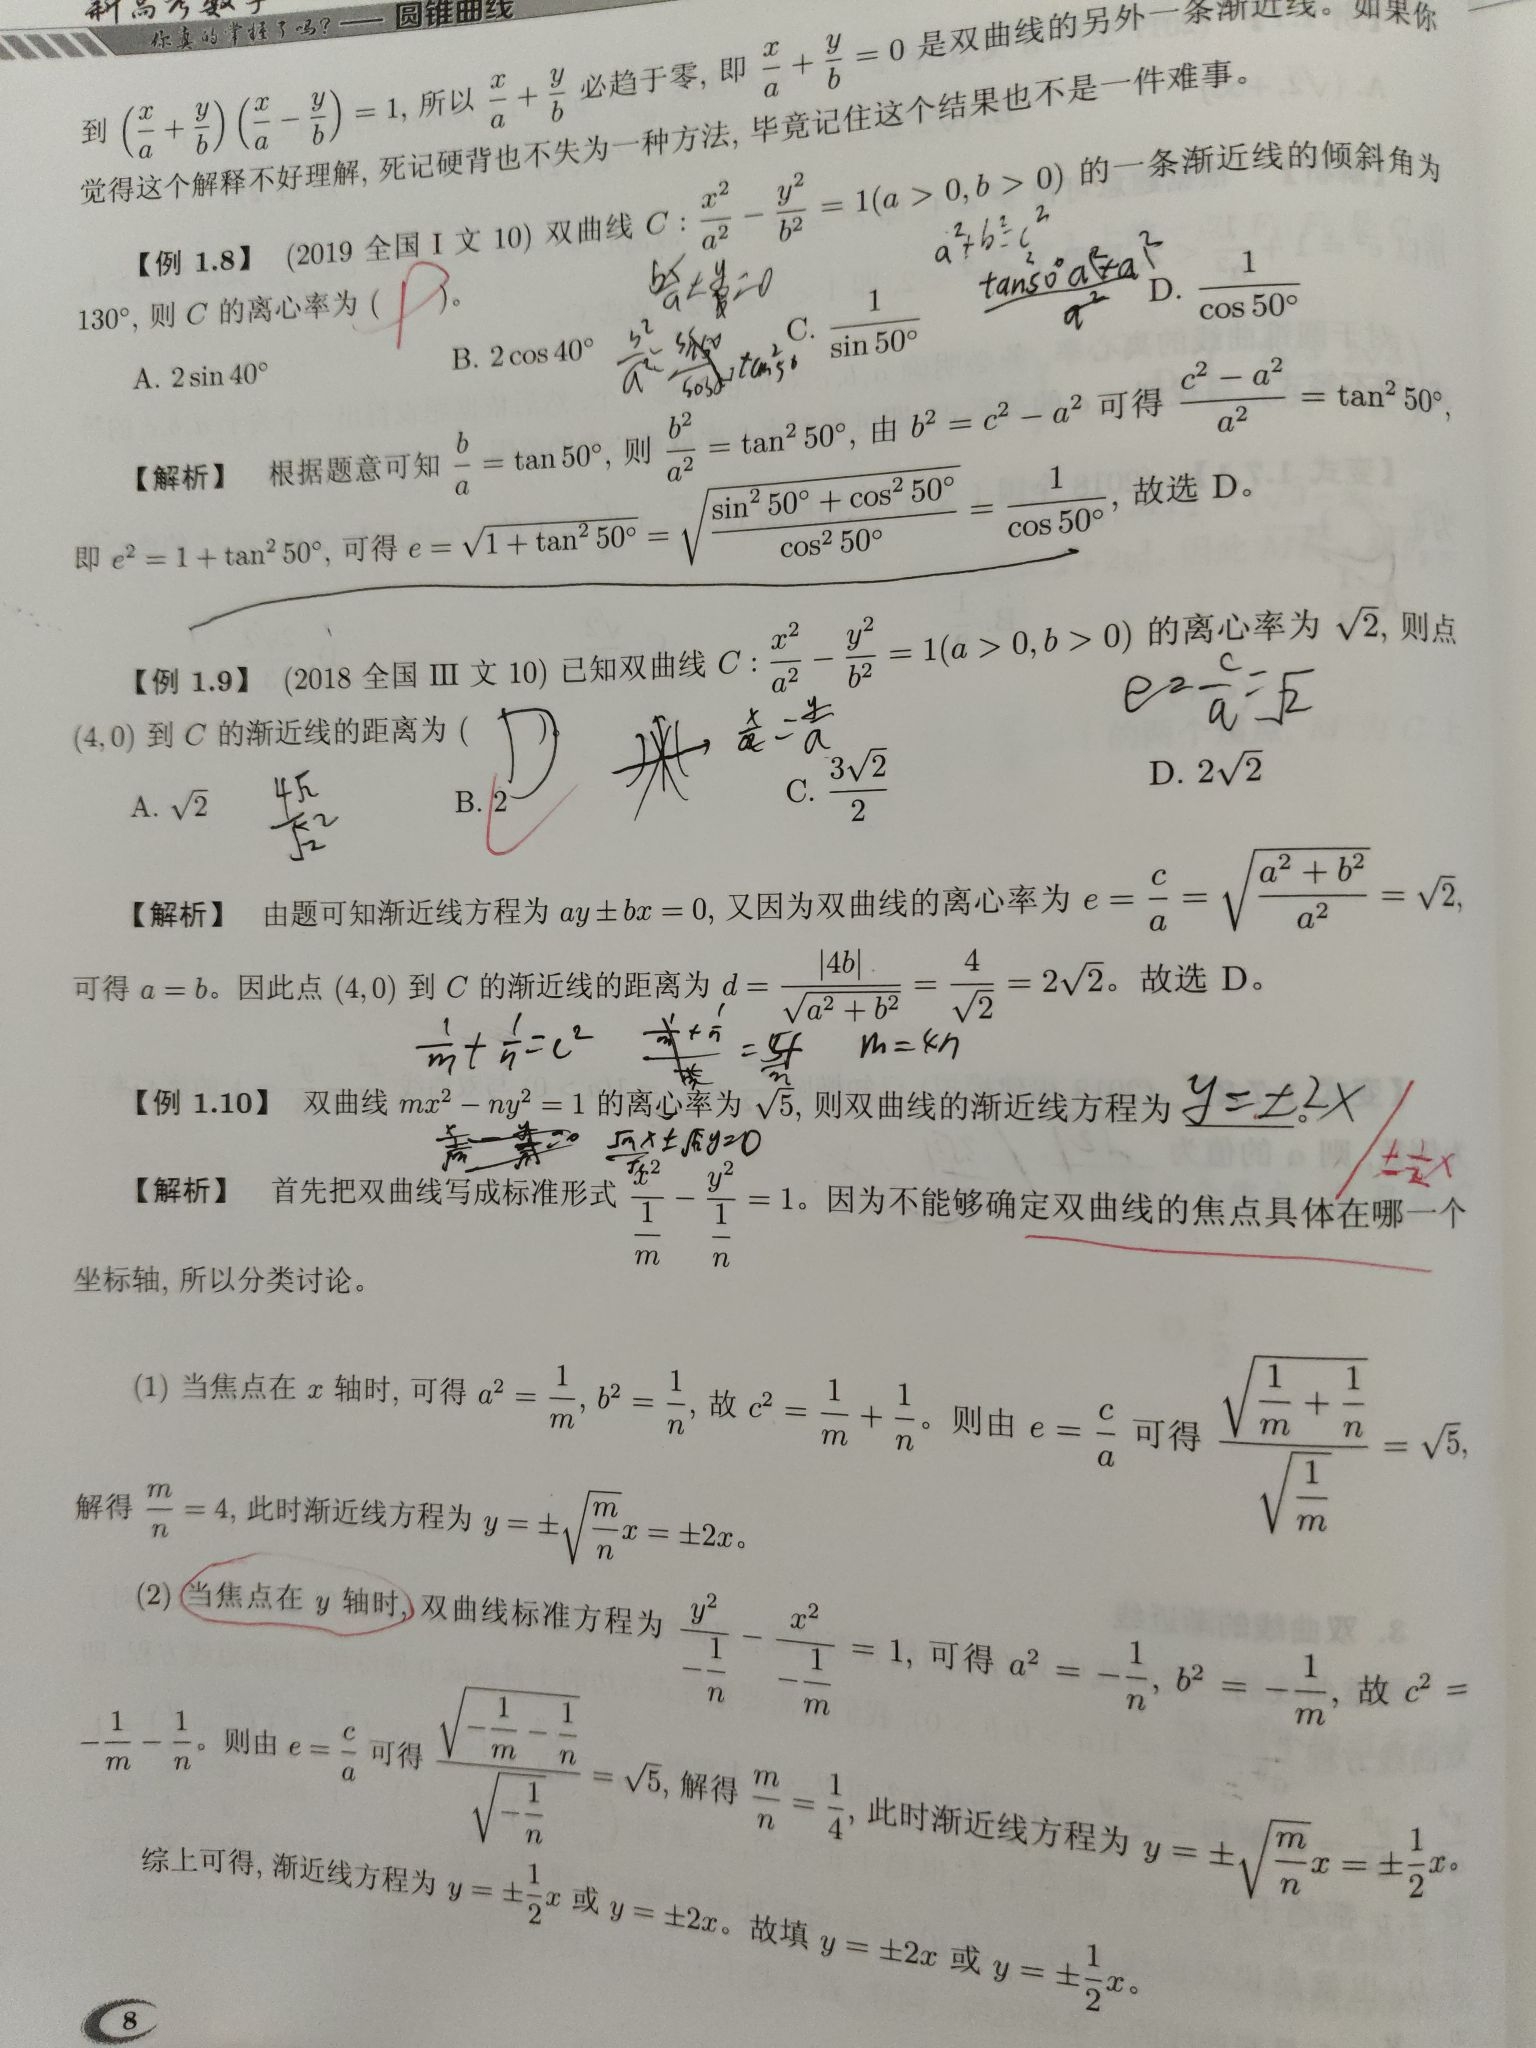 新高考数学
你真的掌握了吗?——圆锥曲线
到 (x/a + y/b)(x/a − y/b) = 1, 所以 x/a + y/b 必趋于零, 即 x/a + y/b = 0 是双曲线的另外一条渐近线。如果你
觉得这个解释不好理解, 死记硬背也不失为一种方法, 毕竟记住这个结果也不是一件难事。
【例 1.8】 (2019 全国 I 文 10) 双曲线 C : x²/a² − y²/b² = 1(a > 0, b > 0) 的一条渐近线的倾斜角为
a²+b²=c²
130°, 则 C 的离心率为 ( D )。
A. 2 sin 40° B. 2 cos 40° C. 1/sin 50° D. 1/cos 50°
【解析】 根据题意可知 b/a = tan 50°, 则 b²/a² = tan² 50°, 由 b² = c² − a² 可得 (c² − a²)/a² = tan² 50°,
即 e² = 1 + tan² 50°, 可得 e = √(1 + tan² 50°) = √((sin² 50° + cos² 50°)/cos² 50°) = 1/cos 50°, 故选 D。
【例 1.9】 (2018 全国 III 文 10) 已知双曲线 C : x²/a² − y²/b² = 1(a > 0, b > 0) 的离心率为 √2, 则点
e=c/a=√2
(4, 0) 到 C 的渐近线的距离为 ( D )。
x/a=y/a
A. √2 B. 2 C. 3√2/2 D. 2√2
【解析】 由题可知渐近线方程为 ay ± bx = 0, 又因为双曲线的离心率为 e = c/a = √((a² + b²)/a²) = √2,
可得 a = b。因此点 (4, 0) 到 C 的渐近线的距离为 d = |4b|/√(a² + b²) = 4/√2 = 2√2。故选 D。
1/m+1/n=c² m=4n
【例 1.10】 双曲线 mx² − ny² = 1 的离心率为 √5, 则双曲线的渐近线方程为 y=±2x。
√m x±√n y=0
±1/2x
【解析】 首先把双曲线写成标准形式 x²/(1/m) − y²/(1/n) = 1。因为不能够确定双曲线的焦点具体在哪一个
坐标轴, 所以分类讨论。
(1) 当焦点在 x 轴时, 可得 a² = 1/m, b² = 1/n, 故 c² = 1/m + 1/n。则由 e = c/a 可得 √(1/m + 1/n)/√(1/m) = √5,
解得 m/n = 4, 此时渐近线方程为 y = ±√(m/n)x = ±2x。
(2) 当焦点在 y 轴时, 双曲线标准方程为 y²/(−1/n) − x²/(−1/m) = 1, 可得 a² = −1/n, b² = −1/m, 故 c² =
−1/m − 1/n。则由 e = c/a 可得 √(−1/m − 1/n)/√(−1/n) = √5, 解得 m/n = 1/4, 此时渐近线方程为 y = ±√(m/n)x = ±1/2x。
综上可得, 渐近线方程为 y = ±1/2x 或 y = ±2x。故填 y = ±2x 或 y = ±1/2x。
8